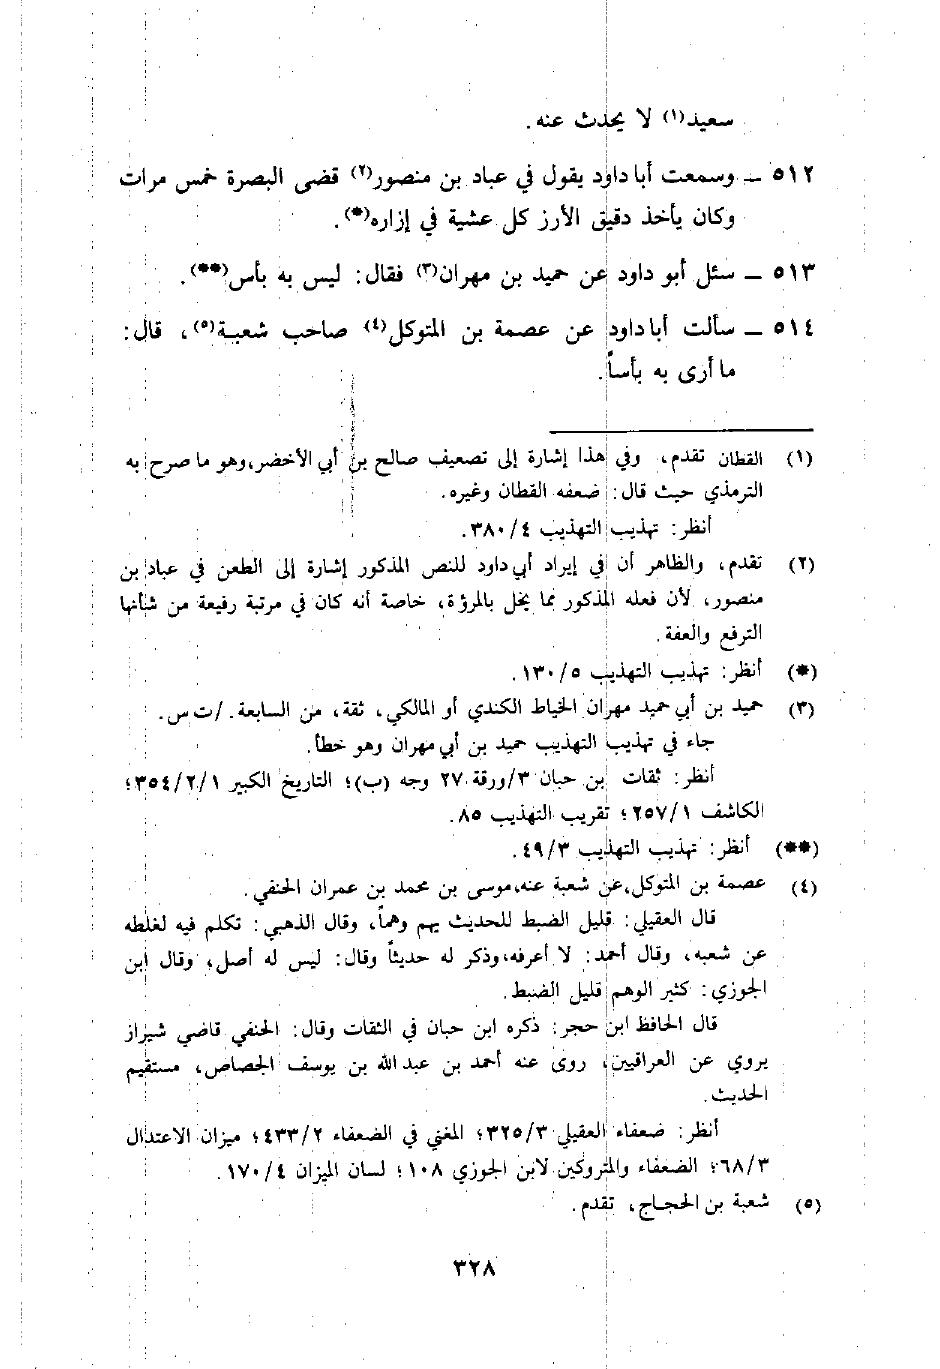 سعيد(١) لا يحدث عنه.
٥١٢ ـ وسمعت أبا داود يقول في عباد بن منصور(٢) قضى البصرة خمس مرات
وكان يأخذ دقيق الأرز كل عشية في إزاره(*).
٥١٣ ـ سئل أبو داود عن حميد بن مهران(٣) فقال: ليس به بأس(**).
٥١٤ ـ سألت أبا داود عن عصمة بن المتوكل(٤) صاحب شعبة(٥)، قال:
ما أرى به بأساً.
(١) القطان تقدم، وفي هذا إشارة إلى تصعيف صالح بن أبي الأخضر، وهو ما صرح به
الترمذي حيث قال: ضعفه القطان وغيره.
أنظر: تهذيب التهذيب ٣٨٠/٤.
(٢) تقدم، والظاهر أن في إيراد أبي داود للنص المذكور إشارة إلى الطعن في عباد بن
منصور، لأن فعله المذكور مما يخل بالمرؤة، خاصة أنه كان في مرتبة رفيعة من شأنها
الترفع والعفة.
(*) أنظر: تهذيب التهذيب ١٣٠/٥.
(٣) حميد بن أبي حميد مهران الخياط الكندي أو المالكي، ثقة، من السابعة. /ت س.
جاء في تهذيب التهذيب حميد بن أبي مهران وهو خطأ.
أنظر: ثقات بن حبان ٣/ورقة ٢٧ وجه (ب)؛ التاريخ الكبير ٣٥٤/٢/١؛
الكاشف ٢٥٧/١؛ تقريب التهذيب ٨٥.
(**) أنظر: تهذيب التهذيب ٤٩/٣.
(٤) عصمة بن المتوكل، عن شعبة عنه، موسى بن محمد بن عمران الحنفي.
قال العقيلي: قليل الضبط للحديث يهم وهماً، وقال الذهبي: تكلم فيه لغلطه
عن شعبه، وقال أحمد: لا أعرفه، وذكر له حديثاً وقال: ليس له أصل، وقال ابن
الجوزي: كثير الوهم قليل الضبط.
قال الحافظ ابن حجر: ذكره ابن حبان في الثقات وقال: الحنفي قاضي شيراز
يروي عن العراقيين، روى عنه أحمد بن عبد الله بن يوسف الجصاص، مستقيم
الحديث.
أنظر: ضعفاء العقيلي ٣٢٥/٣؛ المغني في الضعفاء ٤٣٣/٢؛ ميزان الاعتدال
٦٨/٣؛ الضعفاء والمتروكين لابن الجوزي ١٠٨؛ لسان الميزان ١٧٠/٤.
(٥) شعبة بن الحجاج، تقدم.
٣٢٨